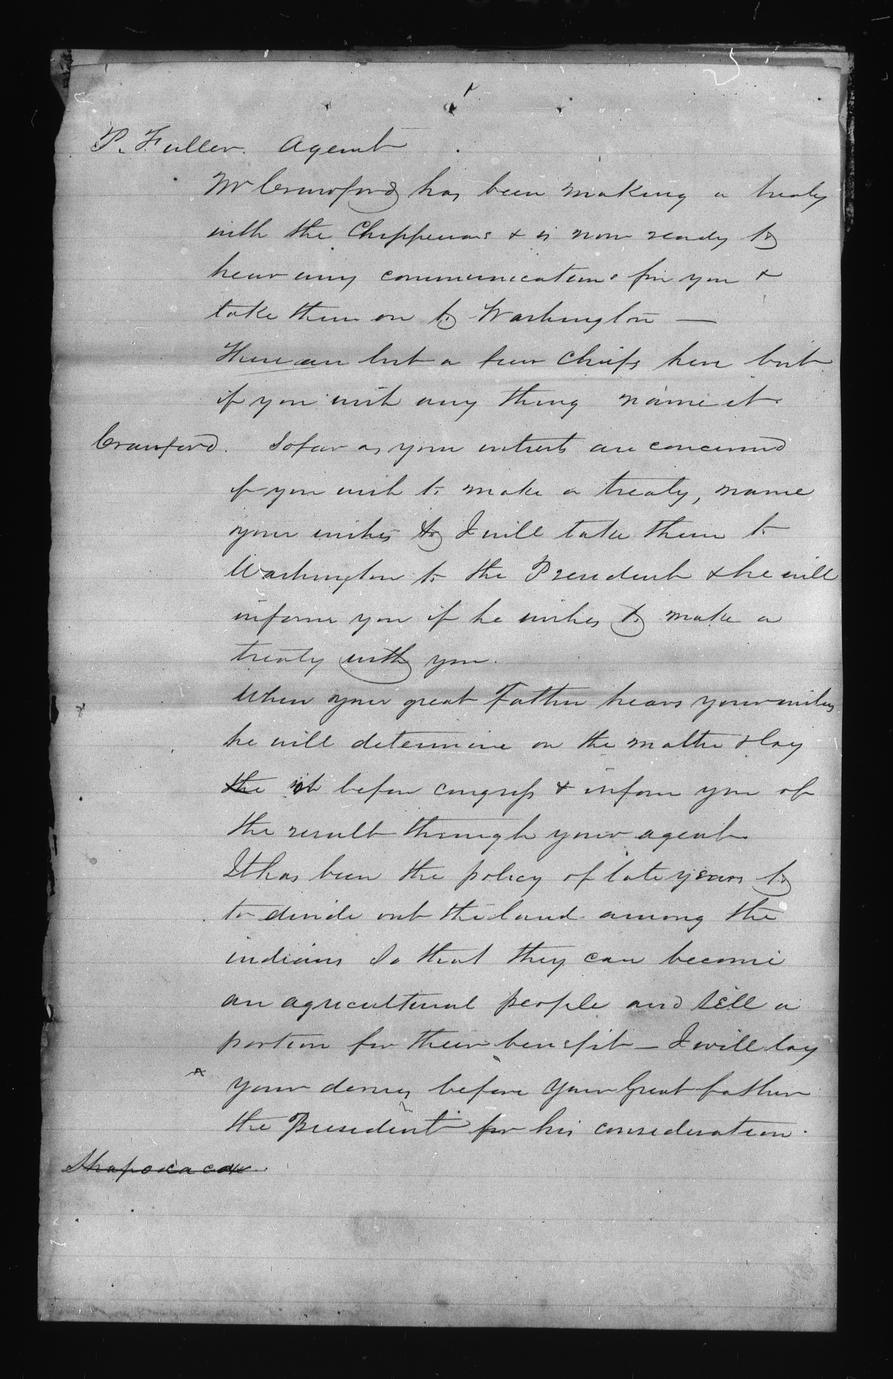 P. Fuller. Agent
Mr Crawford has been making a treaty
with the Chippewas & is now ready to
hear any communications for you &
take them on to Washington —
There are but a few chiefs here but
if you wish any thing name it
Crawford. So far as your intrests are concerned
if you wish to make a treaty, name
your wishes & I will take them to
Washington to the President & he will
inform you if he wishes to make a
treaty with you.
When your great Father hears your wishes
he will determine on the matter & lay
the it before congress & inform you of
the result through your agent
It has been the policy of late years to
to divide out the land among the
indians so that they can become
an agricultural people and sell a
portion for their benefit — I will lay
your desires before your Great father
the President for his consideration.